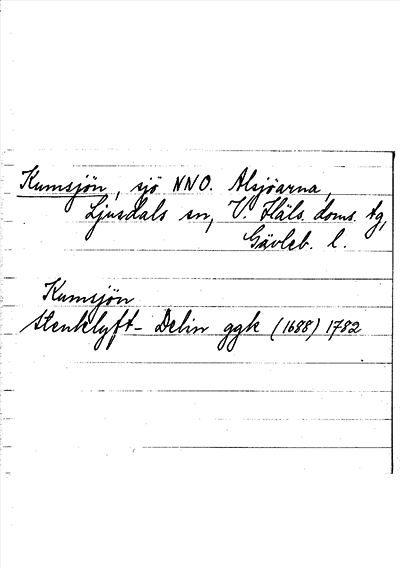 Kumsjön, sjö NNO. Alsjöarna,
Ljusdals sn, V. Häls. doms. tg,
Gävleb. l.
Kumsjön
Stenklyft- Delin ggk (1688) 1782